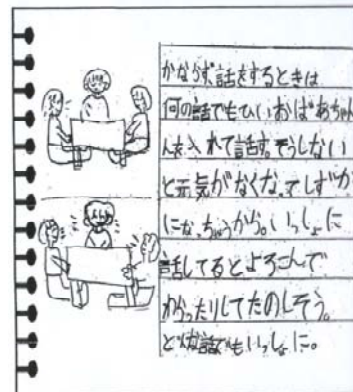 かならず、話をするときは
何の話でもひいおばあちゃん
を入れて話す。そうしない
と元気がなくなってしずか
になっちゃうから。いっしょに
話してるとよろこんで
わらったりしてたのしそう。
どんな話でもいっしょに。